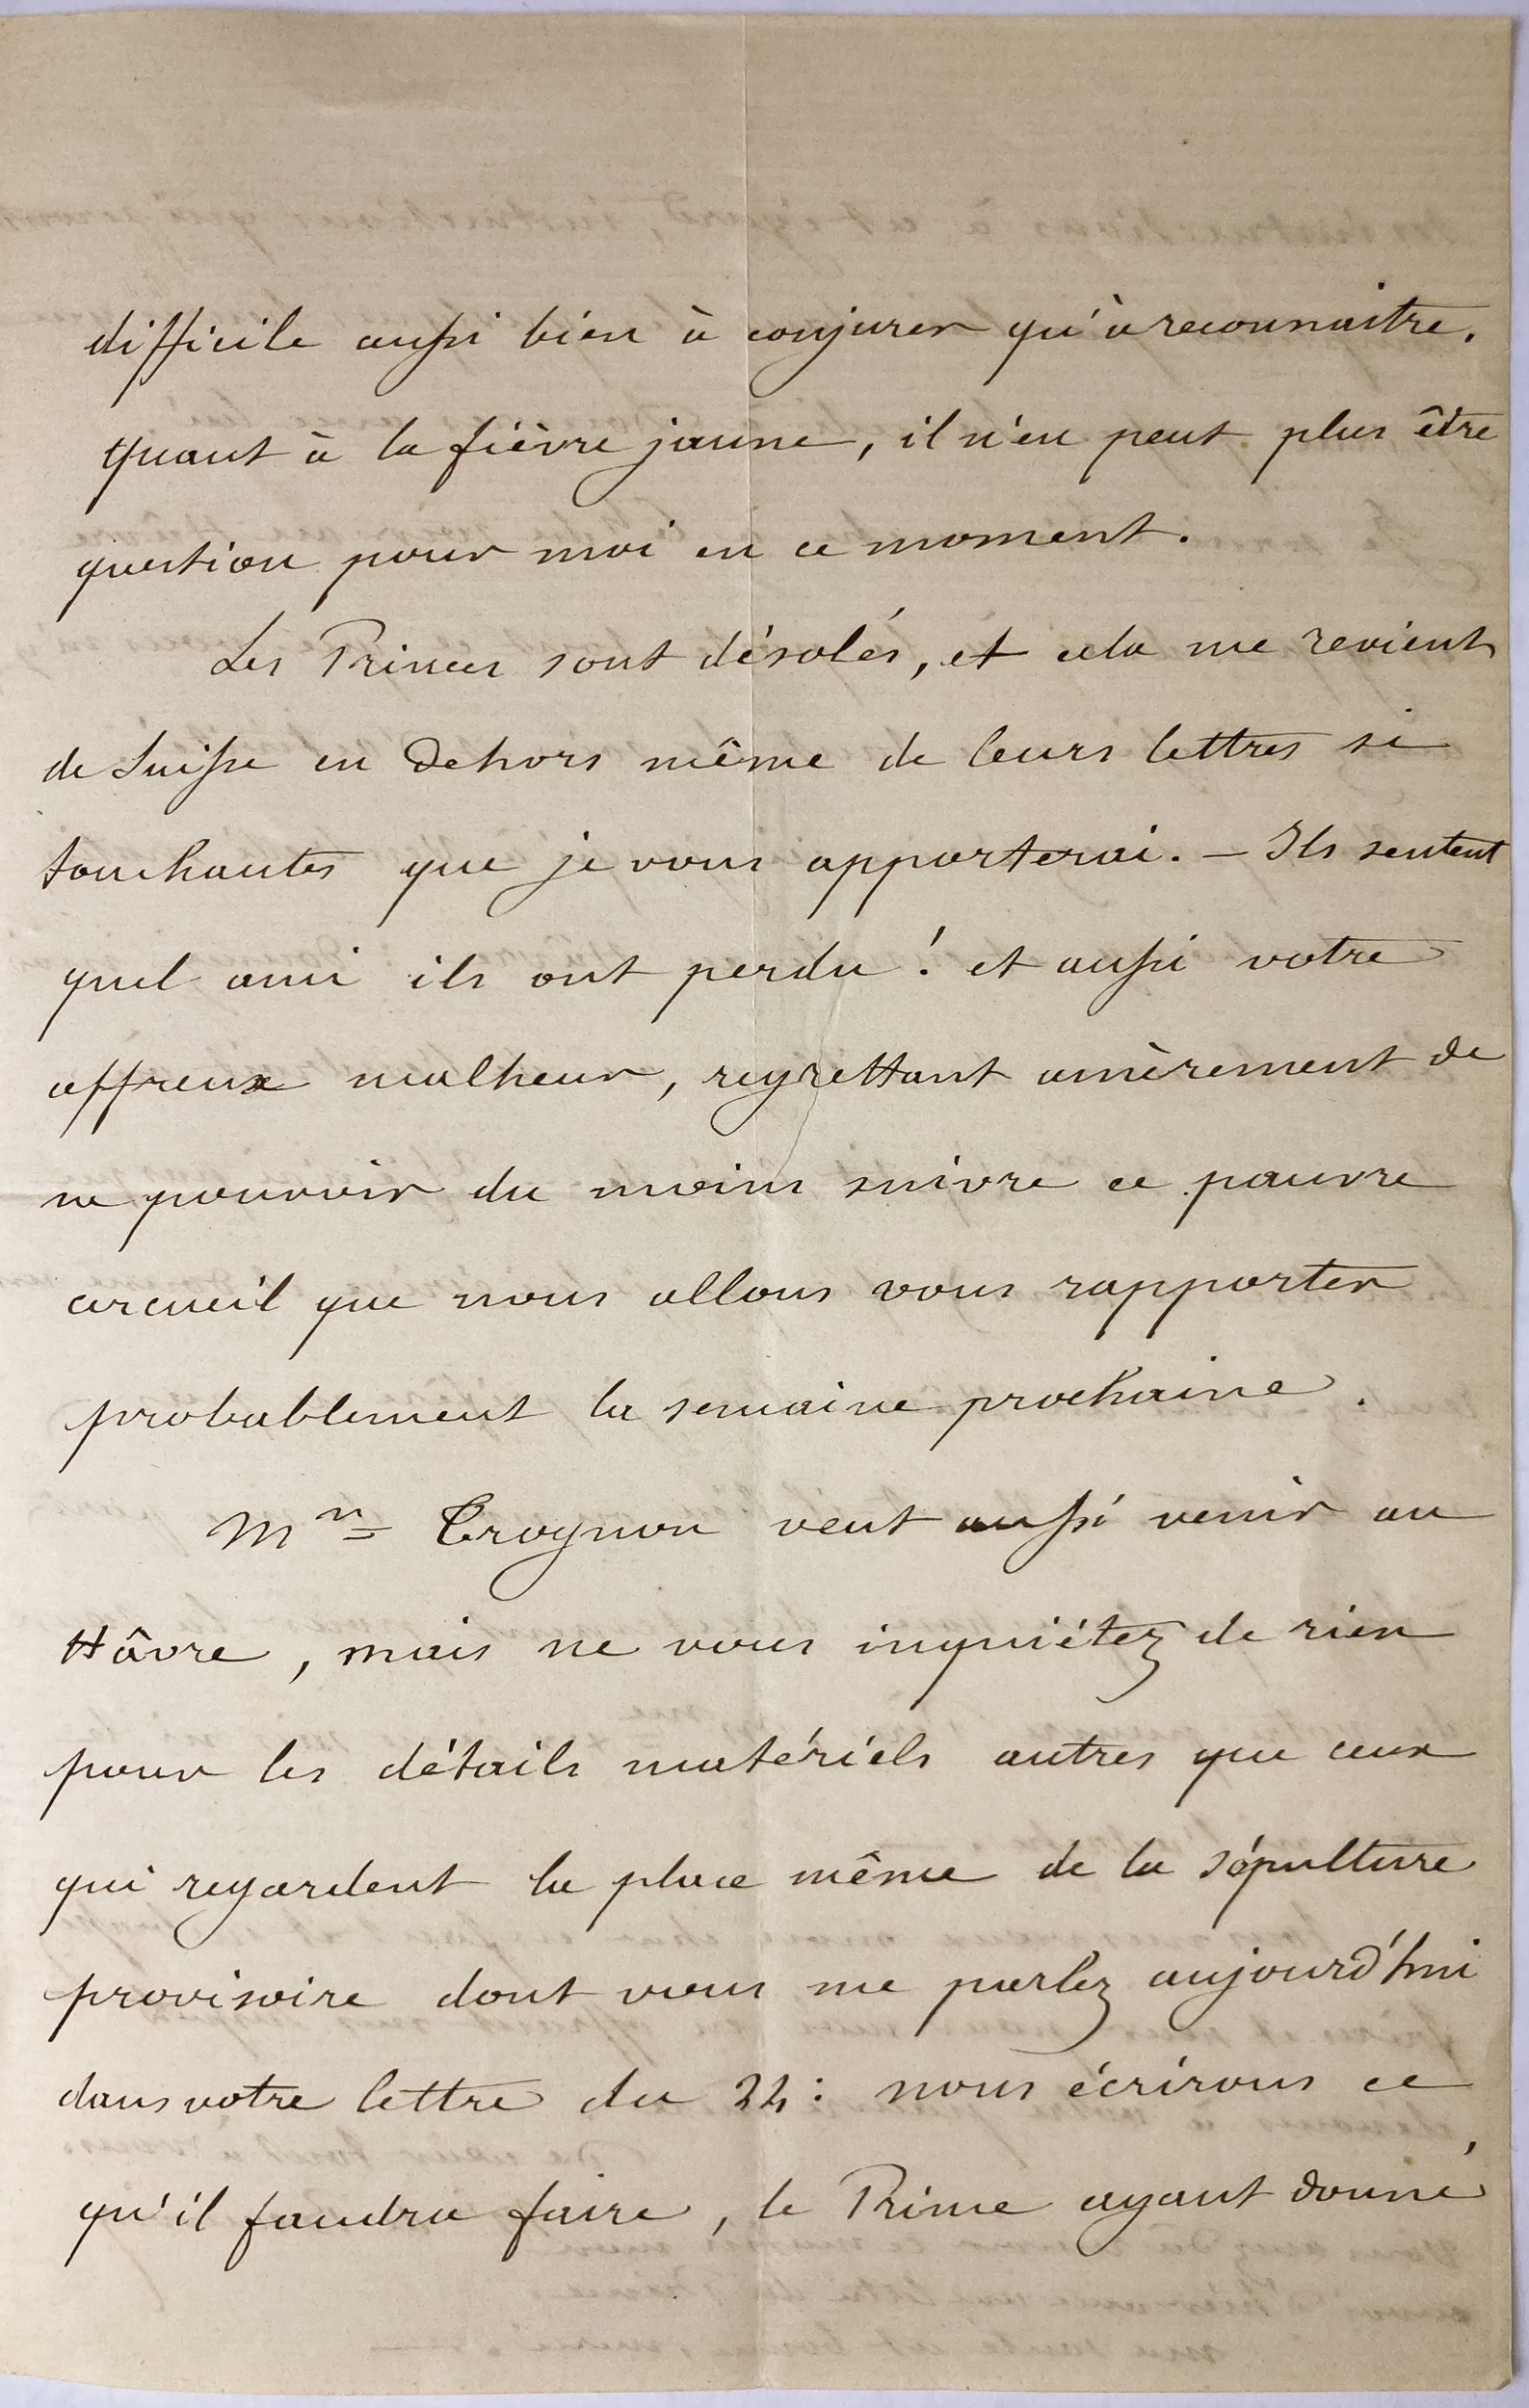 difficile aussi bien à conjurer qu'à reconnaitre.
quant à la fièvre jaune, il n'en peut plus être
question pour moi en ce moment.
Les Princes sont désolés, et cela me revient
de Suisse en dehors même de leurs lettres si
touchantes que je vous apporterai. — Ils sentent
quel ami ils ont perdu ! et aussi votre
affreux malheur, regrettant amèrement de
ne pouvoir du moins suivre ce pauvre
cercueil que nous allons vous rapporter
probablement la semaine prochaine.
Mr Trognon veut aussi venir au
Hâvre, mais ne vous inquiétez de rien
pour les détails matériels autres que ceux
qui regardent la place même de la sépulture
provisoire dont vous me parlez aujourd'hui
dans votre lettre du 24 : nous écrirons ce
qu'il faudra faire, le Prince ayant donné